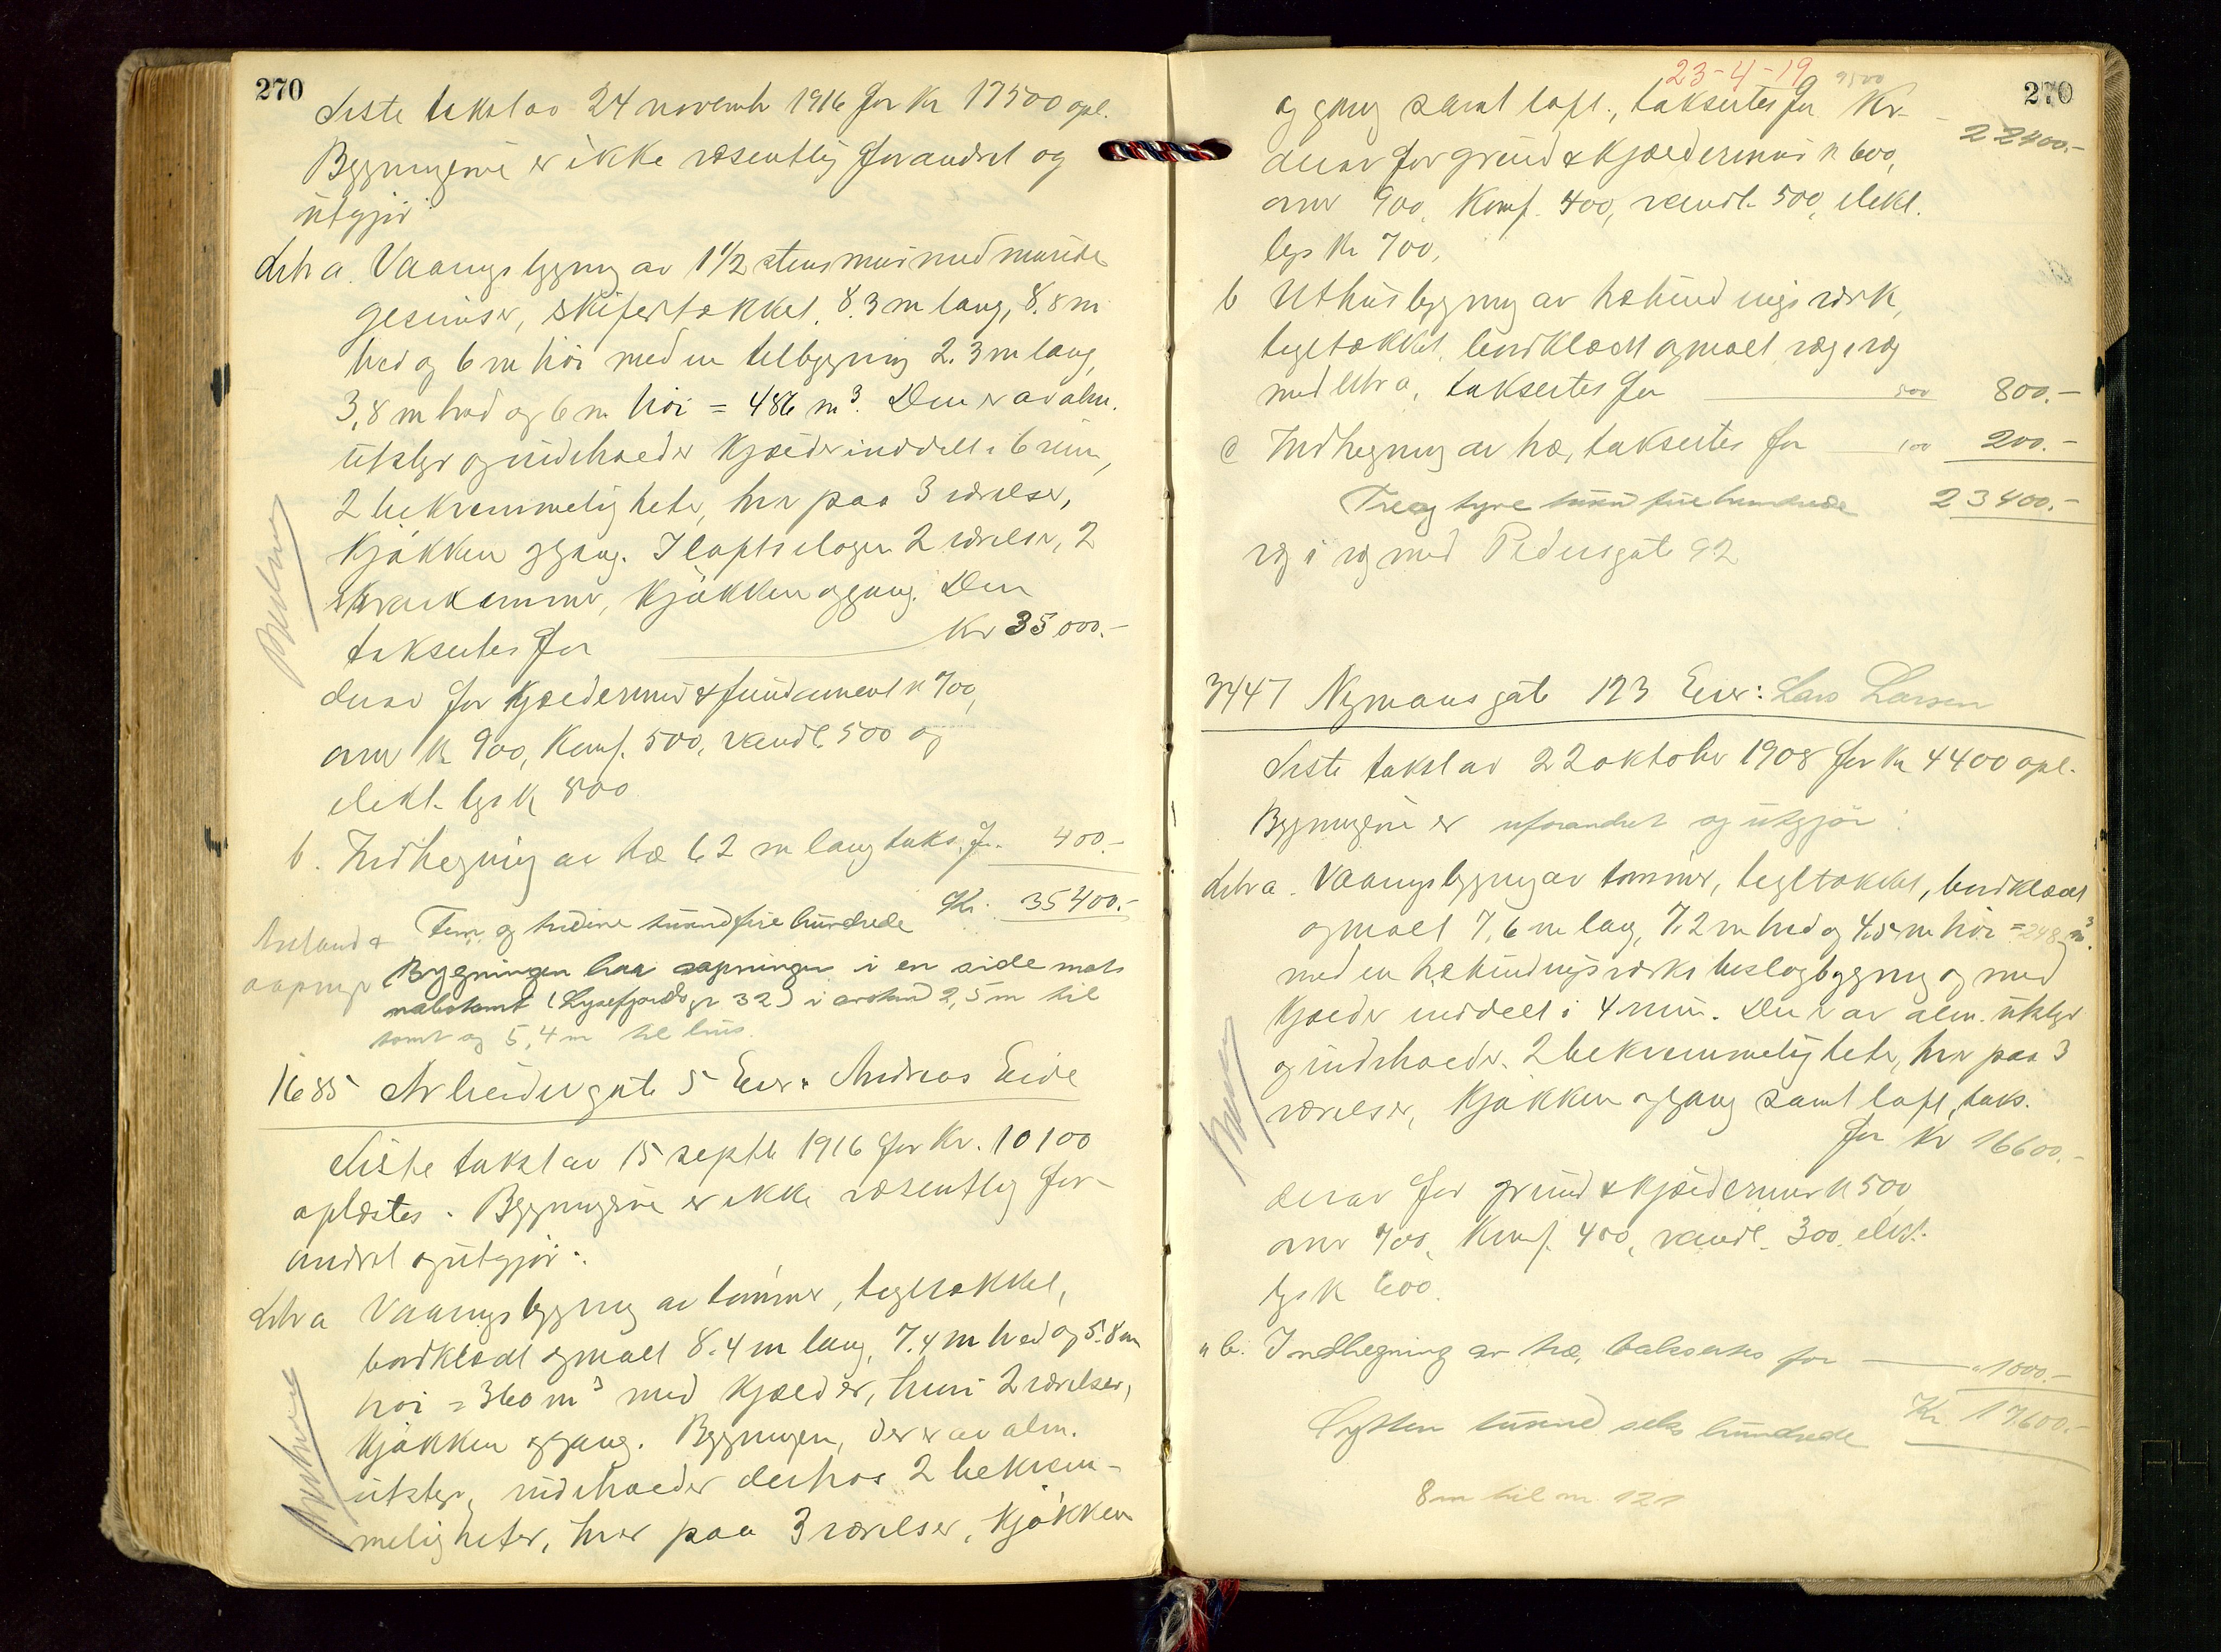 270
Siste takst av 24 novembr 1916 for Kr 17500 opl.
Bygningerne er ikke væsentlig forandret og
utgjör
Litra a. Vaaningsbygning av 1 1/2 stens mur med murede
gesimser, skifertækket, 8.3 m lang, 8.8 m
bred og 6 m höi med en tilbygning 2.3 m lang,
3,8 m bred og 6 m höi = 486 m³. Den er av alm.
utstyr og indeholder kjælder inddelt i 6 rum,
2 bekvemmeligheter, hver paa 3 værelser,
kjökken og gang. I loftsetagen 2 værelser, 2
skraakammer, kjökken og gang. Den
takseres for Kr 35000.-
derav for kjældermur & fundament kr 700,
ovner kr 900, komf. 500, vandl. 500 og
elekt. lys kr 800
b. Indhegning av træ 62 m lang taks. for 400.-
Kr. 35400.-
Fem og tredive tusind fire hundrede
Avstand &
aapninger
Bygningen har aapninger i en side mot
nabotomt (Lysefjordsgt 32) i avstand 2,5 m til
tomt og 5,4 m til hus.
1685 Arbeidergate 5 Eier: Andreas Eide
Siste takst av 15 septbr 1916 for Kr. 10100
oplæstes. Bygningerne er ikke væsentlig for-
andret og utgjör:
Litra a Vaaningsbygning av tömmer, tegltækket,
bordklædt og malt 8.4 m lang, 7.4 m bred og 5.8 m
höi = 360 m³ med kjælder, hvori 2 værelser,
kjökken og gang. Bygningen, der er av alm.
utstyr, indeholder derhos 2 bekvem-
meligheter, hver paa 3 værelser, kjökken
23-4-19
270
9500
og gang samt loft, takseres for Kr. 22400.-
derav for grund & kjældermur kr 600,
ovner 900, komf. 400, vandl. 500, elekt.
lys kr 700,
b Uthusbygning av træbindingsverk,
tegltækket, bordklædt og malt væg i væg
med litra a, takseres for 500 800.-
c Indhegning av træ, takseres for 100 200.-
Tre og tyve tusind fire hundrede 23400.-
væg i væg med Pedersgate 92
3447 Nymansgate 123 Eier: Lars Larsen
Siste takst av 22 oktober 1908 for Kr 4400 opl.
Bygningerne er uforandret og utgjör:
Litra a. Vaaningsbygning av tömmer, tegltækket, bordklædt
og malt 7,6 m lang, 7,2 m bred og 4,5 m höi = 248 m³.
med en træbindingsverks beslagbygning og med
kjælder inddelt i 4 rum. Den er av alm. utstyr
og indeholder 2 bekvemmeligheter, hver paa 3
værelser, kjökken og gang samt loft, taks.
for Kr 16600.-
derav for grund & kjældermur kr 500
ovner 700, komf. 400, vandl. 300, elekt.
lys kr 600.
" b. Indhegning av træ, takseres for " 1000.-
Kr. 17600.-
Sytten tusind seks hundrede
8 m til nr. 121